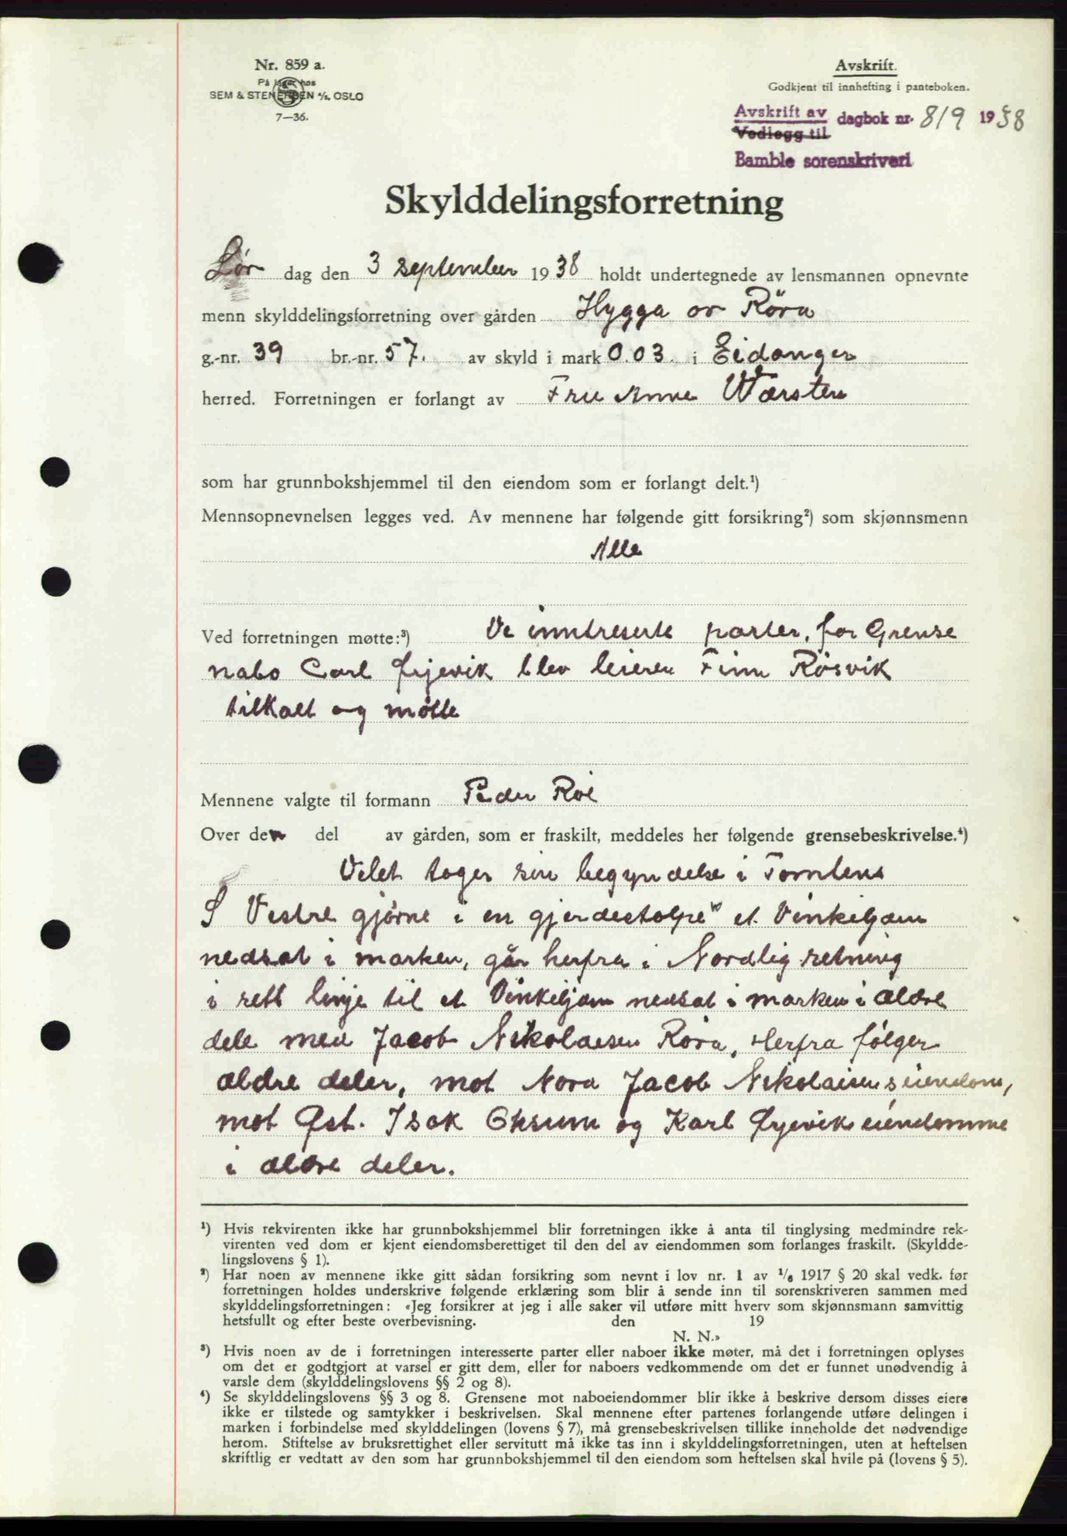 Nr. 859 a.
På lager hos
SEM & STENERSEN A/S. OSLO
7—36.
Avskrift.
Godkjent til innhefting i panteboken.
Avskrift av dagbok nr. 819 1938
Vedlegg til
Bamble sorenskriveri
Skylddelingsforretning
Lør dag den 3 september 1938 holdt undertegnede av lensmannen opnevnte
menn skylddelingsforretning over gården Hygga av Röra
g.-nr. 39 br.-nr. 57. av skyld i mark 0.03. i Eidanger
herred. Forretningen er forlangt av Fru Anna Wærsten
som har grunnbokshjemmel til den eiendom som er forlangt delt.¹)
Mennsopnevnelsen legges ved. Av mennene har følgende gitt forsikring²) som skjønnsmenn
Alle
Ved forretningen møtte:³) De inntreserte parter, for Grense
nabo Carl Øyjevik blev leieren Finn Røsvik
tilkalt og møtte
Mennene valgte til formann Peder Roe
Over den del av gården, som er fraskilt, meddeles her følgende grensebeskrivelse.⁴)
Delet tager sin begyndelse i Tomtens
S Vestre gjørne i en gjerdestolpe et Vinkeljern
nedsat i marken, går herfra i Nordlig retning
i rett linje til et Vinkeljern nedsat i marken i ældre
dele med Jacob Nikolaisen Röra, Herfra følger
ældre deler, mot Nord Jacob Nikolaisens eiendom,
mot Øst. Isak Oksum og Karl Øyjeviks eiendomme
i ældre deler.
¹) Hvis rekvirenten ikke har grunnbokshjemmel blir forretningen ikke å anta til tinglysing medmindre rek-
virenten ved dom er kjent eiendomsberettiget til den del av eiendommen som forlanges fraskilt. (Skyldde-
lingslovens § 1).
²) Har noen av mennene ikke gitt sådan forsikring som nevnt i lov nr. 1 av 1/6 1917 § 20 skal vedk. før
forretningen holdes underskrive følgende erklæring som blir å sende inn til sorenskriveren sammen med
skylddelingsforretningen: «Jeg forsikrer at jeg i alle saker vil utføre mitt hverv som skjønnsmann samvittig
hetsfullt og efter beste overbevisning. den 19
N. N.»
³) Hvis noen av de i forretningen interesserte parter eller naboer ikke møter, må det i forretningen oplyses
om det er godtgjort at varsel er gitt dem, eller for naboers vedkommende om det er funnet unødvendig å
varsle dem (skylddelingslovens §§ 2 og 8).
⁴) Se skylddelingslovens §§ 3 og 8. Grensene mot naboeiendommer blir ikke å beskrive dersom disses eiere
ikke er tilstede og samtykker i beskrivelsen. Skal mennene efter partenes forlangende utføre delingen i
marken i forbindelse med skylddelingen (lovens § 7), må grensebeskrivelsen tillike inneholde det nødvendige
herom. Stiftelse av bruksrettighet eller servitutt må ikke tas inn i skylddelingsforretningen, uten at heftelsen
skriftlig er vedtatt av den som har grunnbokshjemmel til den eiendom som heftelsen skal hvile på (lovens § 5).